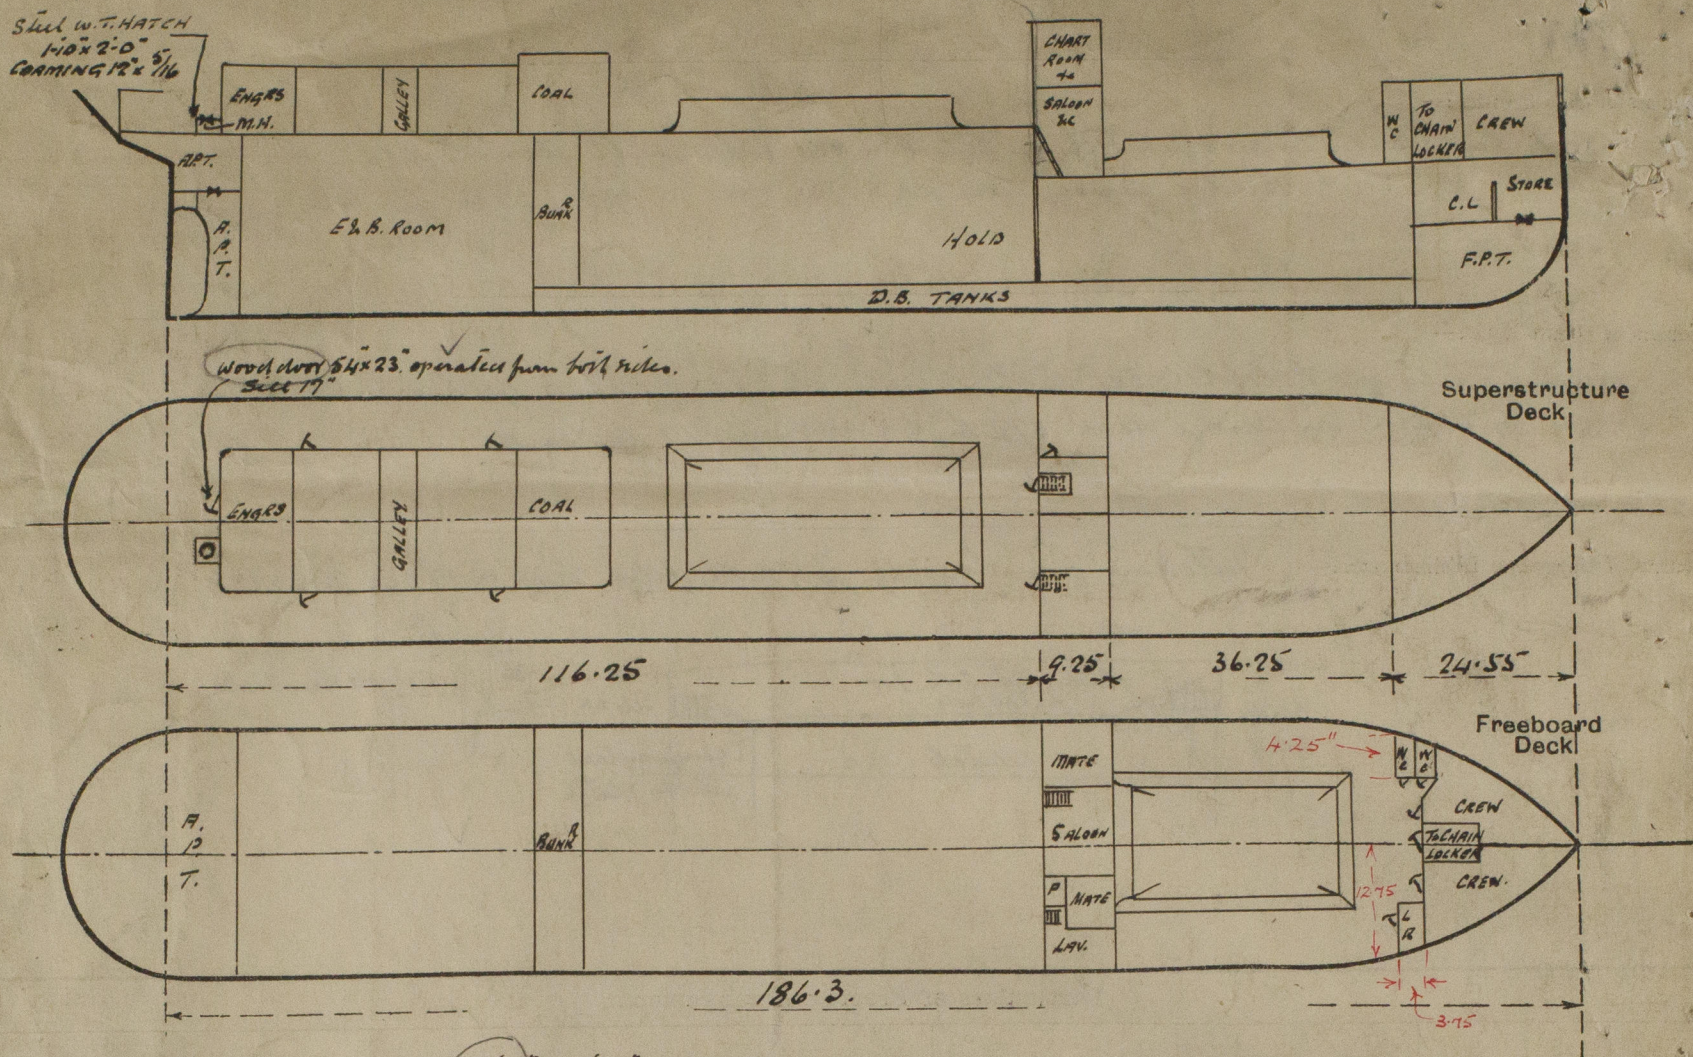 Steel W.T. HATCH
1'-10" x 2'-0"
COAMING 12" x 5/16
ENGRS
M.H.
GALLEY
COAL
CHART
ROOM
&c
SALOON
&c
W
C
TO
CHAIN
LOCKER
CREW
A.P.T.
A.
P.
T.
E & B. ROOM
BUNKR
HOLD
C.L
STORE
F.P.T.
D.B. TANKS
wood door 54" x 23" operated from both sides.
Sill 17"
Superstructure
Deck
ENGRS
GALLEY
COAL
116.25
9.25
36.25
24.55
Freeboard
Deck
4.25"
MATE
W
C
W
C
CREW
A.
P.
T.
BUNKR
SALOON
TO CHAIN
LOCKER
P
MATE
12.75
CREW.
L
R
LAV.
186.3.
3.75